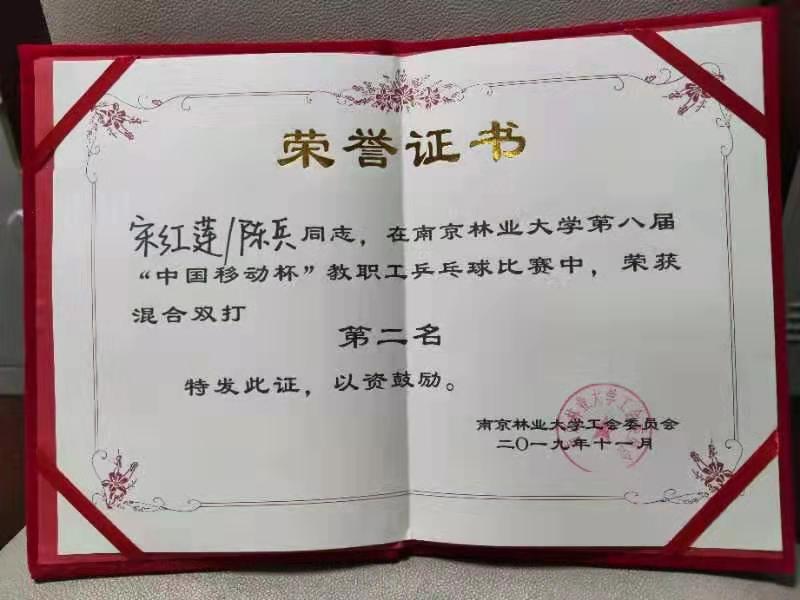 荣誉证书
宋红莲/陈兵同志，在南京林业大学第八届
“中国移动杯”教职工乒乓球比赛中，荣获
混合双打
第二名
特发此证，以资鼓励。
南京林业大学工会委员会
二〇一九年十一月
林业大学工会